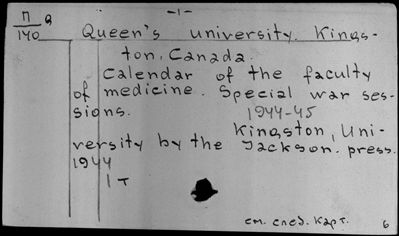 -1-
П 8
140
Queen's university. Kings-
ton, Canada.
Calendar of the faculty
of medicine. Special war ses-
sions. 1944-45
Kingston, Uni-
versity by the Jackson. press.
1944
1 т
см. след. карт. 6